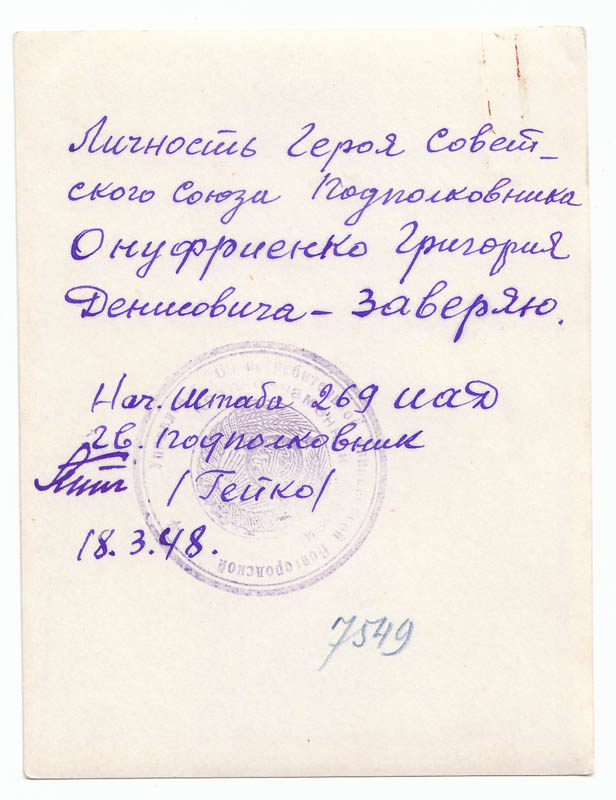 Личность Героя Совет-
ского Союза Подполковника
Онуфриенко Григория
Денисовича – заверяю.
Нач. штаба 269 иад
Гв. подполковник
/Гейко/
18.3.48.
Новгородской
7549